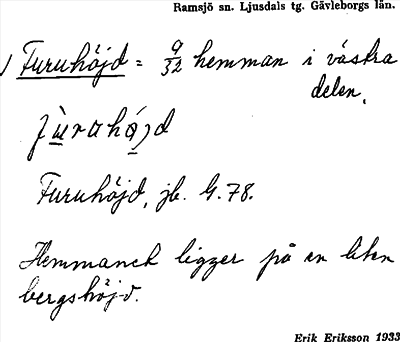 Ramsjö sn. Ljusdals tg. Gävleborgs län.
) Furuhöjd = 9/32 hemman i västra
delen.
Furuhöjd, jb. G. 78.
Hemmanet ligger på en liten
bergshöjd.
Erik Eriksson 1933